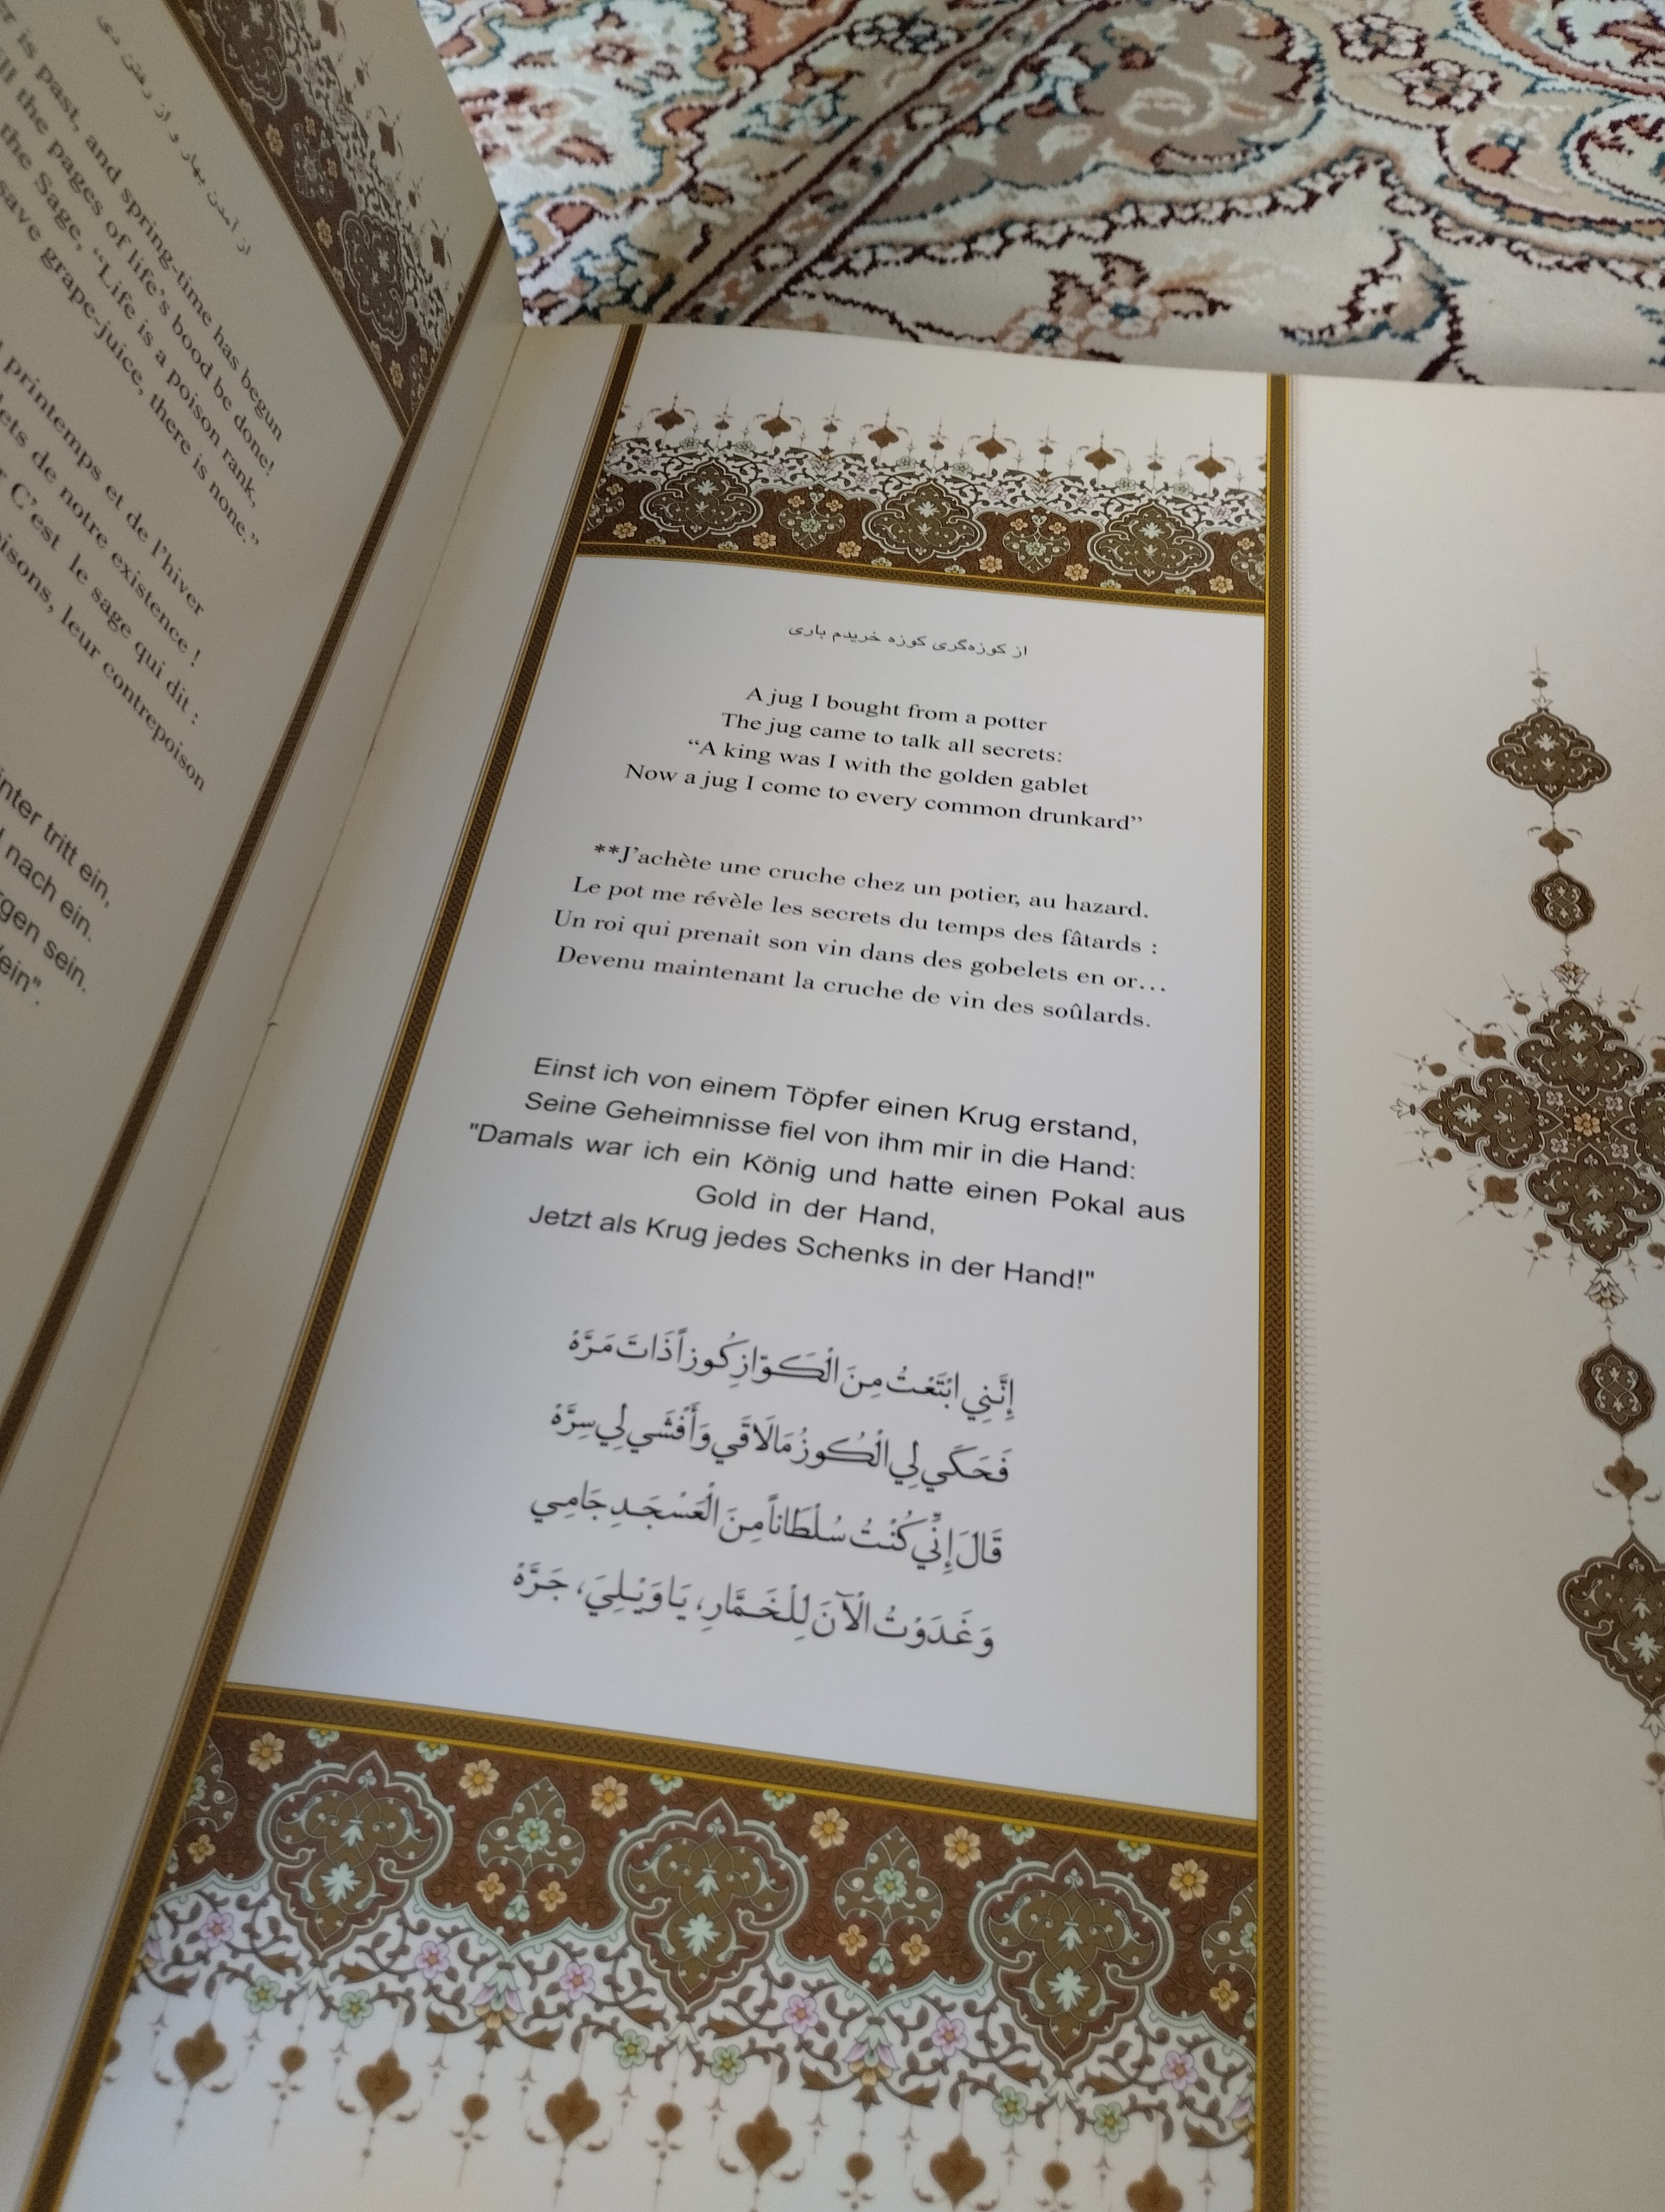 از آمدن بهار و از رفتن دی
is past, and spring-time has begun
the pages of life's bood be done!
the Sage, “Life is a poison rank,
save grape-juice, there is none.”
printemps et de l'hiver
de notre existence !
C'est le sage qui dit :
leur contrepoison
tritt ein,
nach ein.
sein.
از کوزه‌گری کوزه خریدم باری
A jug I bought from a potter
The jug came to talk all secrets:
“A king was I with the golden gablet
Now a jug I come to every common drunkard”
**J'achète une cruche chez un potier, au hazard.
Le pot me révèle les secrets du temps des fâtards :
Un roi qui prenait son vin dans des gobelets en or...
Devenu maintenant la cruche de vin des soûlards.
Einst ich von einem Töpfer einen Krug erstand,
Seine Geheimnisse fiel von ihm mir in die Hand:
"Damals war ich ein König und hatte einen Pokal aus
Gold in der Hand,
Jetzt als Krug jedes Schenks in der Hand!"
إِنَّنِي ابْتَعْتُ مِنَ الْكَوّازِ كُوزاً ذَاتَ مَرَّهْ
فَحَكَي لِي الْكُوزُ مَا لَاقَي وَأَفْشَي لِي سِرَّهْ
قَالَ إِنِّي كُنْتُ سُلْطَاناً مِنَ الْعَسْجَدِ جَامِي
وَغَدَوْتُ الْآنَ لِلْخَمَّارِ، يَا وَيْلِيَ، جَرَّهْ